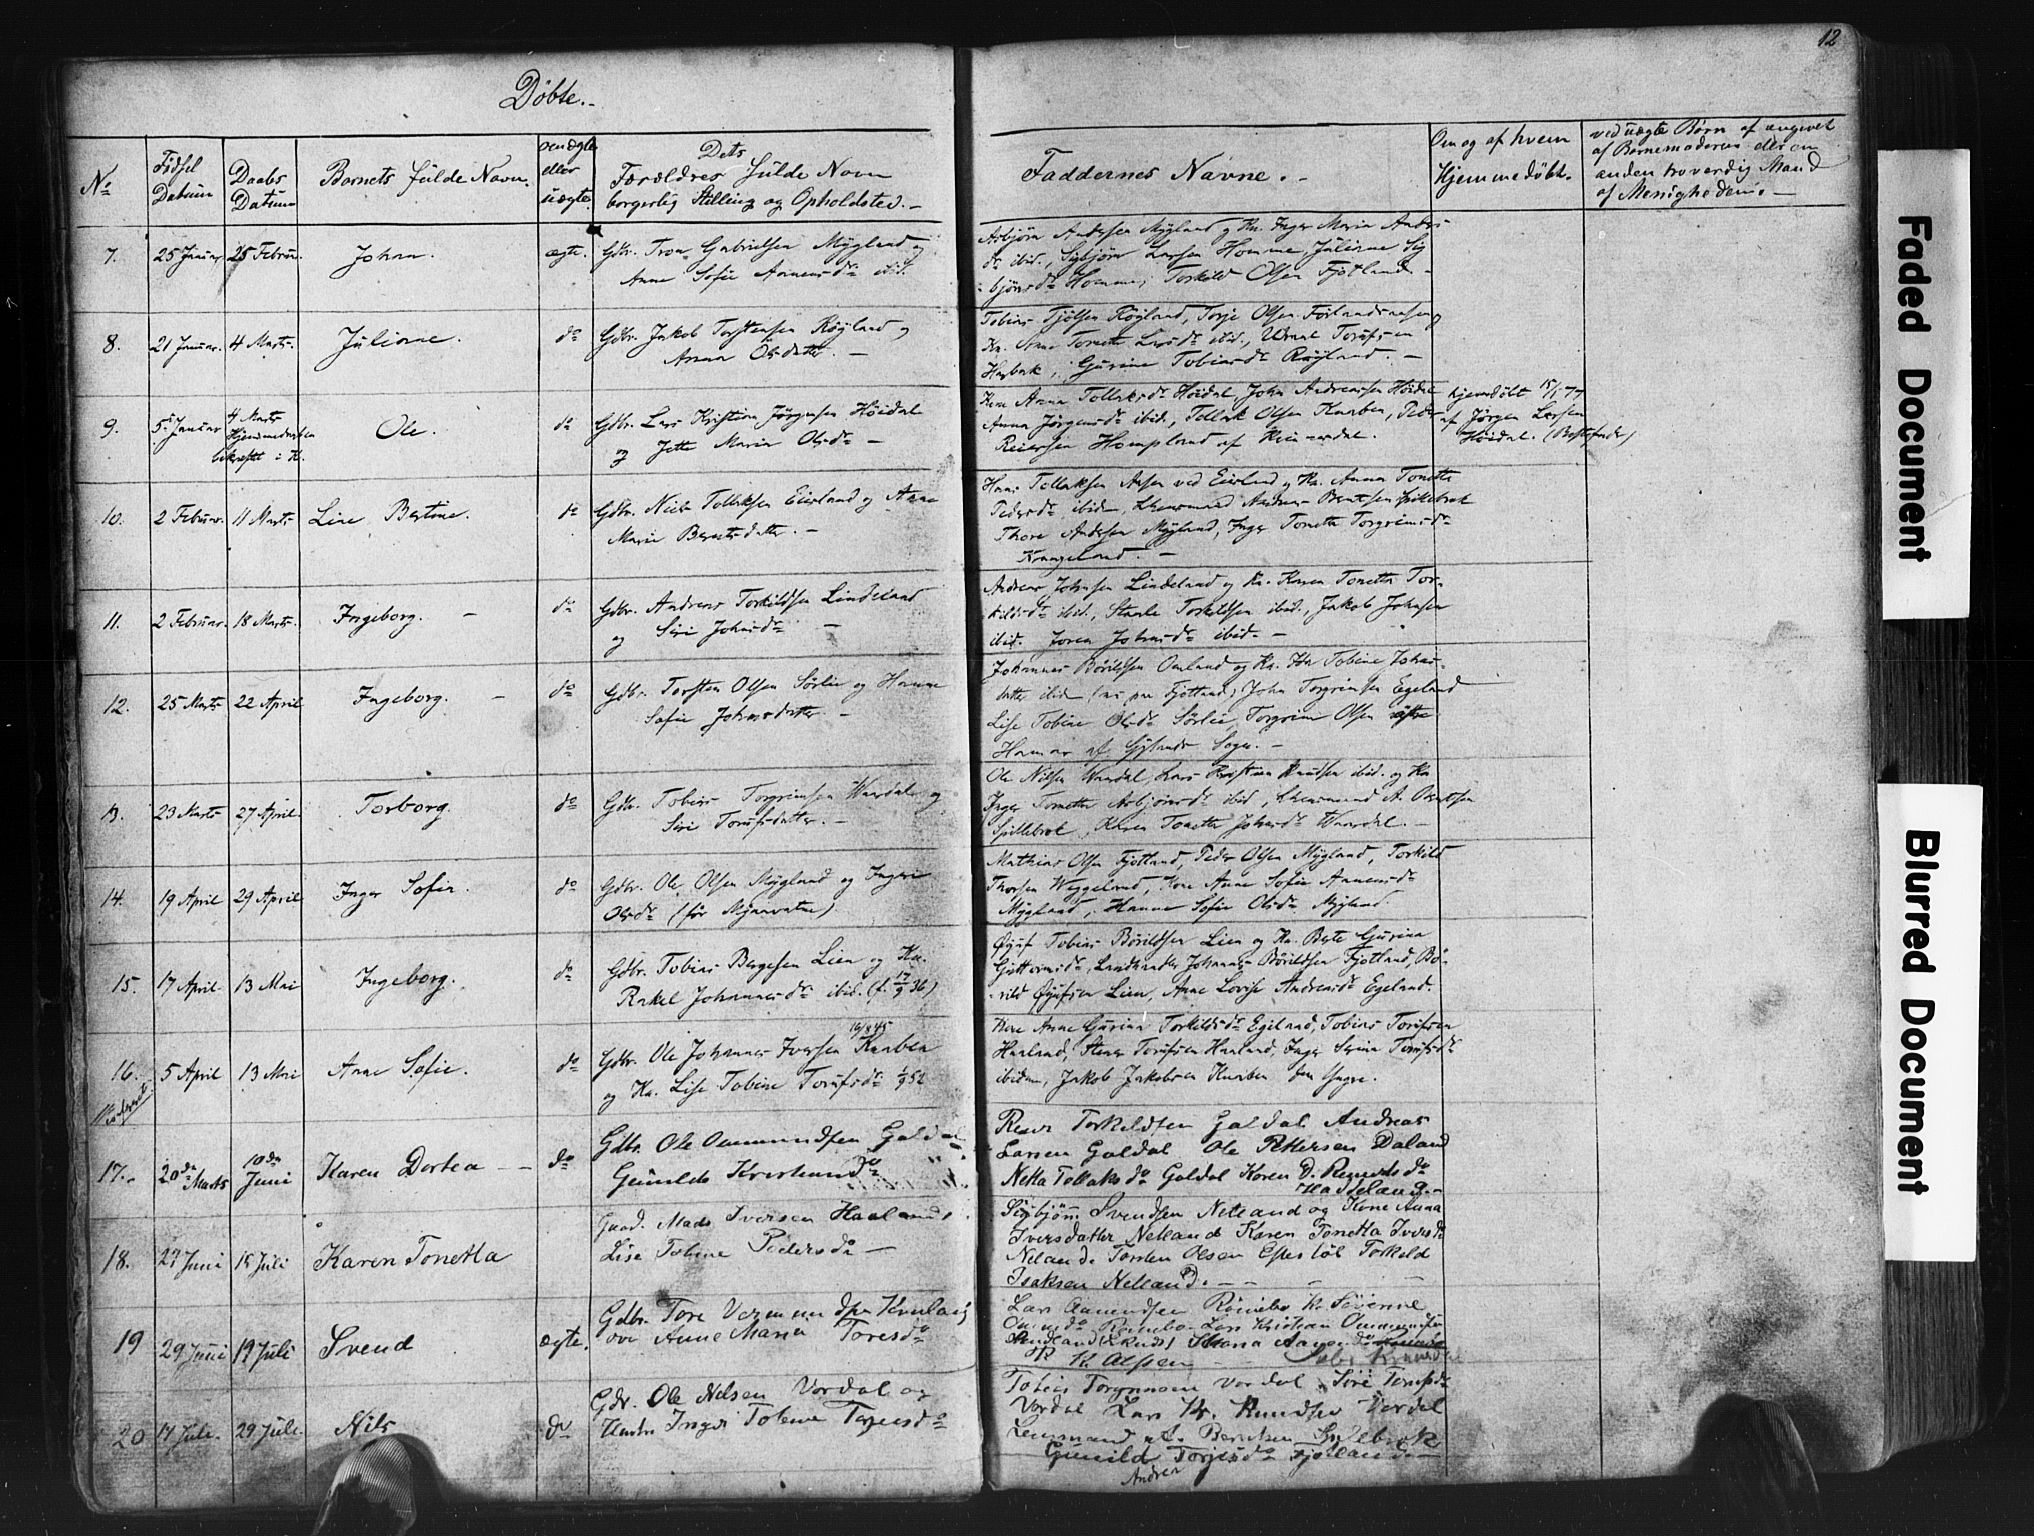 12
Døbte.-
No
Fødsel Datum
Daabs Datum
Barnets fulde Navn.
ægte eller uægte.
Dets Forældres fulde Navn borgerlig Stilling og Opholdsted.-
Faddernes Navne.-
Om og af hvem Hjemmedøbt.-
ved uægte Børn af angivet af Barnemoderen eller en anden troværdig Mand af Menigheden.-
7. 25 Januar 25 Februar. Johan. ægte. Gdbr. Gabrielsen Mygland og
Anne Sofie ibid.
Asbjørn Andersen Mygland og Kn. Inger Maria Anders-
dr ibid., Sigbjørn Larsen Homme, Juliane Sig
björnsdr Homme, Torkild Olsen Fjotland-
8. 21 Januar. 4 Marts. Juliane. do Gdbr. Jakob Torstensen Røyland og
Anna Olsdatter. -
Tobias Røyland, Torje Olsen
Kn. Anne Tonette ibid.,
Gurine Tobiasdr Røyland. -
9. 5 Januar 4 Marts
Hjemmedaaben
bekræftet i K.
Ole. do Gdbr. Lars Kristian Jørgensen Höidal
og Jette Maria Olsdr -
Kone Anna Tollaksdr Höidal John Andreassen Höidal
Anna Jörgensdr ibid., Tollak Olsen Knaben, Peder
Reiersen Hompland af
hjemmedøbt 15/1 77
af Jørgen Larsen
Höidal. (Bestefader)
10. 2 Februar. 11 Marts Line Bertine. do Gdbr. Niels Tollaksen Eierland og Anne
Marie Berntsdatter. -
Hans Tollaksen ved Eierland og Kn. Anna Tonette
Pedersdr ibidem, Lensmand Andreas Berntsen Spillebrok
Thore Andersen Mygland, Inger Tonette Torgrimsdr
Krageland. -
11. 2 Februar. 18 Marts. Ingeborg. - do Gdbr. Andreas Torkildsen Lindeland
og Siri Johnsdr -
Andreas Johnsen Lindeland og Kn. Karen Tonette Tor-
kildsdr ibid., Staale Torkildsen ibid., Jakob Johnsen
ibid. Joren Johnsdr ibid. -
12. 25 Marts 22 April Ingeborg. - do Gdbr. Torsten Olsen Sørlie og Hanne
Sofie Johnsdatter. -
Johannes Bårildsen Omland og Kn. Tobine Johns-
datter ibid (nu paa Fjotland) John Torgrimsen Egeland
Lise Tobine Olsdr Sörlie Torgrim Olsen
Homar af Gylands Sogn. -
13. 23 Marts 27 April. Torborg. do Gdbr. Tobias Torgrimsen Waardal og
Siri Torufsdatter. -
Ole Nilsen Waardal, Lars Kristian Knudsen ibid. og Kn
Inger Tonette Asbjörnsdr ibid, Lensmand A. Berntsen
Spillebrok, Karen Tonette Johnsdr Waardal. -
14. 19 April 29 April Inger Sofie. do Gdbr. Ole Olsen Mygland og Ingeri
Olsdr (før Mjaavatne)
Mathias Olsen Fjotland, Peder Olsen Mygland, Torkild
Thorsen Weggeland, Kone Anne Sofie
Mygland, Hanne Sofie Olsdr Mygland.
15. 17 April 13 Mai Ingeborg. do Gdbr. Tobias Børgesen Lien og Kn.
Rakel Johannesdr ibid. (f. 17/9 36)
Øyuf Tobias Börildsen Lien og Kn. Berte Gurine
Guttormsdr, Landhandler Johannes Börildsen Fjotland, Bö-
rild Øyufsen Lien, Anne Lovise Andreasdr Egeland.
16. 5 April 13 Mai Anne Sofie. do Gdbr. Ole Johannes Iversen Knaben 16/8 45
og Kn. Lise Tobine Torufsdr 1/9 52
Kone Anne Gurine Torkildsdr Egeland, Tobias Torufsen
Haaland, Stener Torufsen Haaland, Inger Serine Torufsdr
ibidem, Jakob Jakobsen Knaben den Yngre.
17. 20de Marts 10de Juni Karen Dortea - do Gdbr. Ole Ommundsen Galdal
Gunild Kristiansdr
Reier Torkildsen Galdal Andreas
Larsen Galdal Ole Pettersen Daland
Netta Tollaksdr Galdal Karen D. Reiersdr
Haddeland.-
18. 27 Juni 15 Juli Karen Tonetta Gaard. Mads Iversen Haaland
Lise Tobine Pedersdr -
Sigbjörn Svendsen Netland og Kone Anna
Iversdatter Netland Karen Tonetta Iversdr
Netland. Torsten Olsen Eftestöl Torkeld
Isaksen Netland. - -
19 29 Juni 19 Juli Svend ægte. Gdbr. Tore
Anne Maria Toresdr
Lars Aamundsen Rönnebo
Lars Kristian Ommundsen
K. Olsen
20 17 Juli. 29 Juli. Nils do Gdr. Ole Nelsen Vordal og
Hustru Inger Tobine Terjesdr
Tobias Torgrimsen Vordal Sire Torufsdr
Vordal Lars Kr. Knudsen Vordal
Lensmand A. Berntsen Spillebrok
Gunild Torjesdr Fjotland -
Andrea
Faded Document
Blurred Document